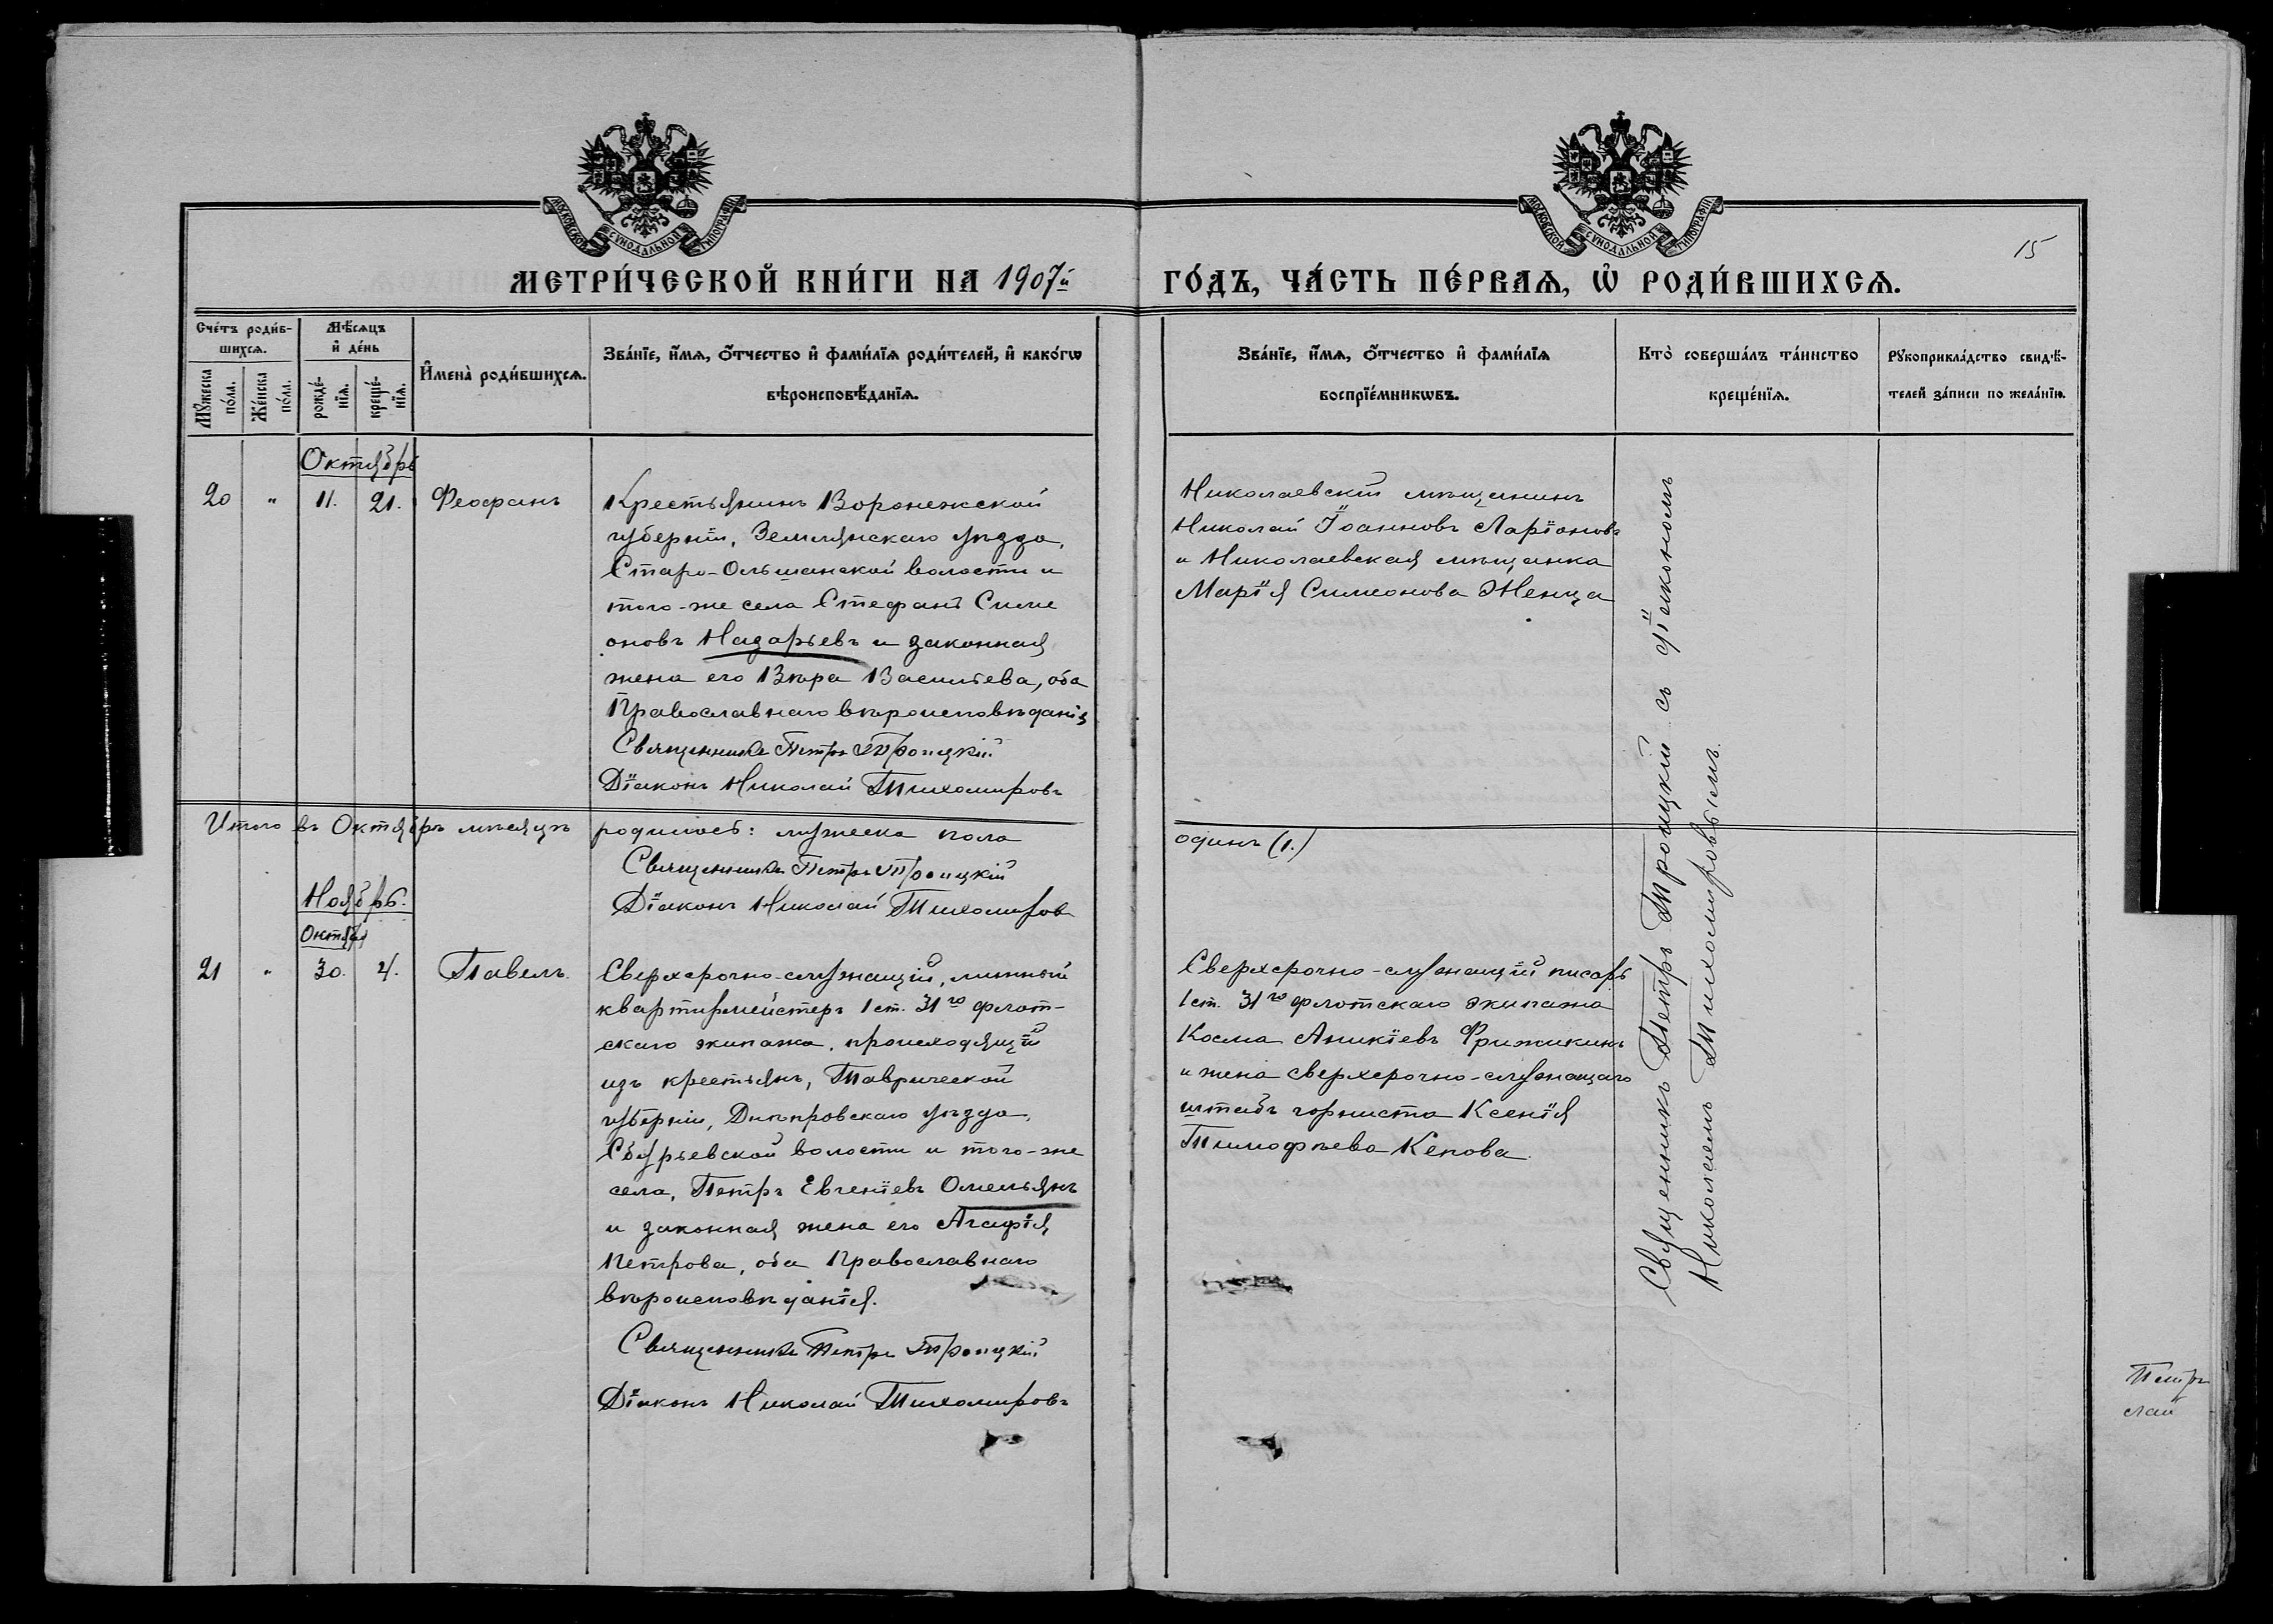 МОСКОВСКОЙ СѴНОДАЛЬНОЙ ТИПОГРАФІИ
МОСКОВСКОЙ СѴНОДАЛЬНОЙ ТИПОГРАФІИ
15
МЕТРИ́ЧЕСКОЙ КНИ́ГИ НА 1907й
ГО́ДЪ, ЧА́СТЬ ПЕ́РВАѦ, Ѡ҆ РОДИ́ВШИХСѦ.
Сче́тъ роди́в-
шихсѧ.
Мꙋ́жеска
по́ла.
Же́нска
по́ла.
Мѣ́сѧцъ
и҆ де́нь
рожде́-
нїѧ.
креще́-
нїѧ.
И҆мена̀ роди́вшихсѧ.
Зва́нїе, и҆́мѧ, ѻ҆́тчество и҆ фами́лїѧ роди́телей, и҆ како́гѡ
вѣроисповѣ́данїѧ.
Зва́нїе, и҆́мѧ, ѻ҆́тчество и҆ фами́лїѧ
воспрїе́мникѡвъ.
Кто̀ соверша́лъ та́инство
креще́нїѧ.
Рꙋкоприкла́дство свидѣ́-
телей за́писи по жела́нїю.
Октябрь
20 " 11. 21. Феофанъ
Крестьянинъ Воронежской
губерніи, Землянскаго уѣзда,
Старо-Ольшанской волости и
того-же села Стефанъ Симе
оновъ Назарьевъ и законная
жена его Вѣра Васильева, оба
Православнаго вѣроисповѣданія
Священникъ Петръ Троицкій
Діаконъ Николай Тихомировъ
Николаевскій мѣщанинъ
Николай Іоанновъ Ларіоновъ
и Николаевская мѣщанка
Марія Симеонова Женца
Священникъ Петръ Троицкій съ діакономъ
Николаемъ Тихомировымъ.
Итого въ Октябрѣ мѣсяцѣ родилось: мужеска пола
одинъ (1.)
Священникъ Петръ Троицкій
Діаконъ Николай Тихомировъ
Ноябрь.
Октября
21 " 30. 4. Павелъ.
Сверхсрочно-служащій, минный
квартирмейстеръ 1 ст. 31го флот-
скаго экипажа, происходящій
изъ крестьянъ, Таврической
губерніи, Днѣпровскаго уѣзда,
Сбурьевской волости и того-же
села, Петръ Евгеніевъ Омельянъ
и законная жена его Агафія
Петрова, оба Православнаго
вѣроисповѣданія.
Священникъ Петръ Троицкій
Діаконъ Николай Тихомировъ
Сверхсрочно-служащій писарь
1 ст. 31го флотскаго экипажа
Косма Аникіевъ Фрижикинъ
и жена сверхсрочно-служащаго
штабъ горниста Ксенія
Тимофѣева Кепова.
Петръ
лай